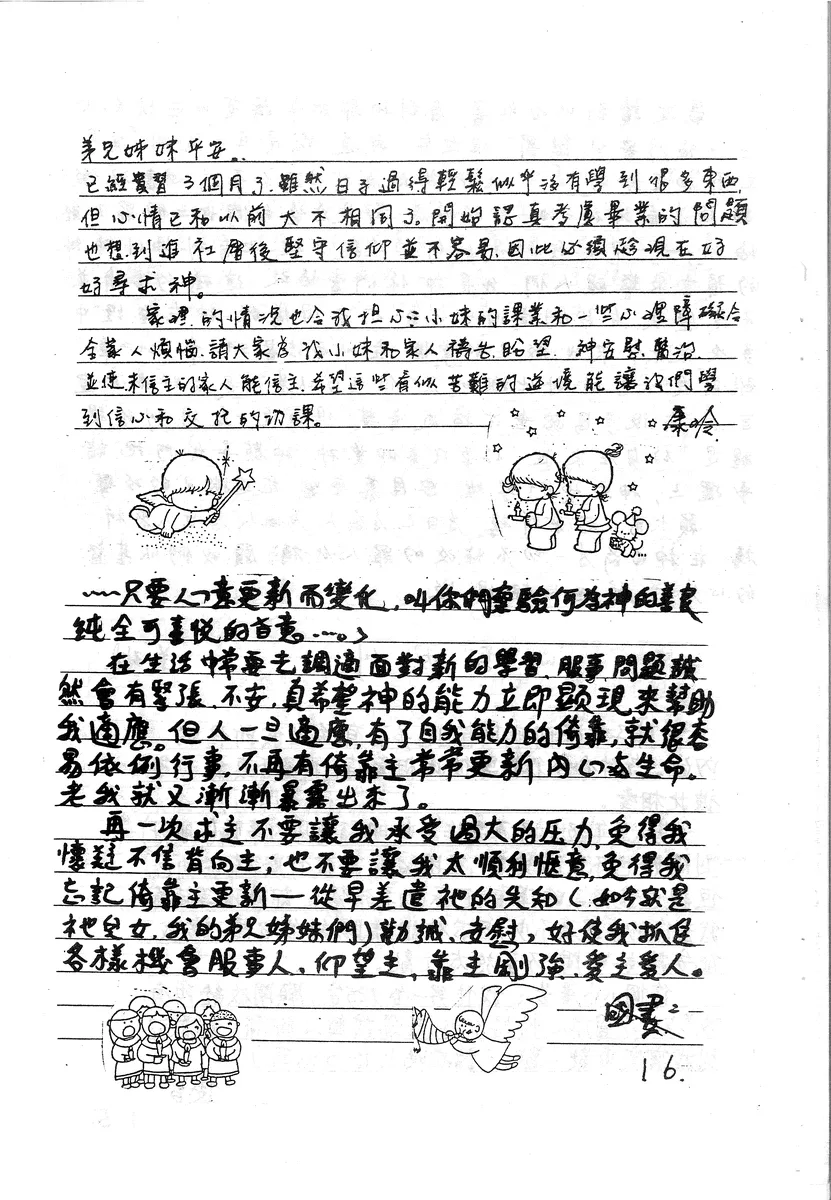 弟兄姊妹平安。
已經實習3個月了,雖然日子過得輕鬆,似乎沒有學到很多東西,
但心情已和以前大不相同了。開始認真考慮畢業的問題
也想到進社會後堅守信仰並不容易,因此必須趁現在好
好尋求神。
家裡的情況也令我担心:小妹的課業和一些心理障礙令
全家人煩惱,請大家為我小妹和家人禱告,盼望 神安慰、醫治,
並使未信主的家人能信主,希望這些看似苦難的逆境能讓他們學
到信心和交托的功課。
……只要心意更新而變化,叫你們察驗何為神的善良
純全可喜悅的旨意……。
在生活中常要去調適面對新的學習,服事,問題誠
然會有緊張、不安,真希望神的能力立即顯現來幫助
我適應。但人一旦適應,有了自我能力的倚靠,就很容
易依例行事,不再有倚靠主常常更新內心與生命。
老我就又漸漸暴露出來了。
再一次求主不要讓我承受過大的压力,免得我
懷疑不信背向主;也不要讓我太順利愜意,免得我
忘記倚靠主更新——從早差遣祂的先知(如今就是
祂兒女,我的弟兄姊妹們)勸誡、安慰,好使我抓住
各樣機會服事人,仰望主,靠主剛強、愛主愛人。
16.